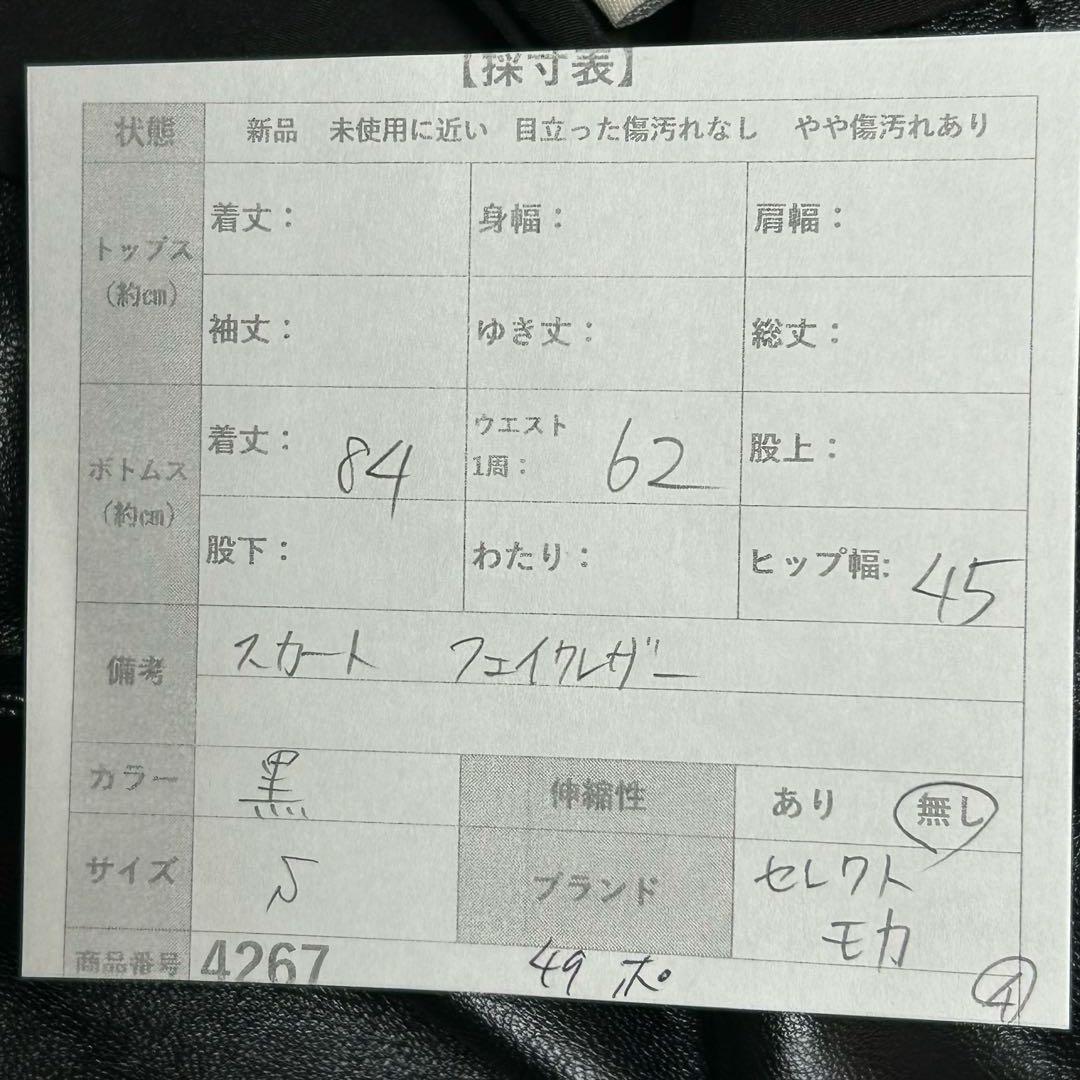 【採寸表】
状態 新品 未使用に近い 目立った傷汚れなし やや傷汚れあり
トップス
(約cm)
着丈： 身幅： 肩幅：
袖丈： ゆき丈： 総丈：
ボトムス
(約cm)
着丈： 84 ウエスト
1周： 62 股上：
股下： わたり： ヒップ幅: 45
備考 スカート フェイクレザー
カラー 黒 伸縮性 あり 無し
サイズ S ブランド セレクト
モカ
商品番号 4267 49 ポ
④